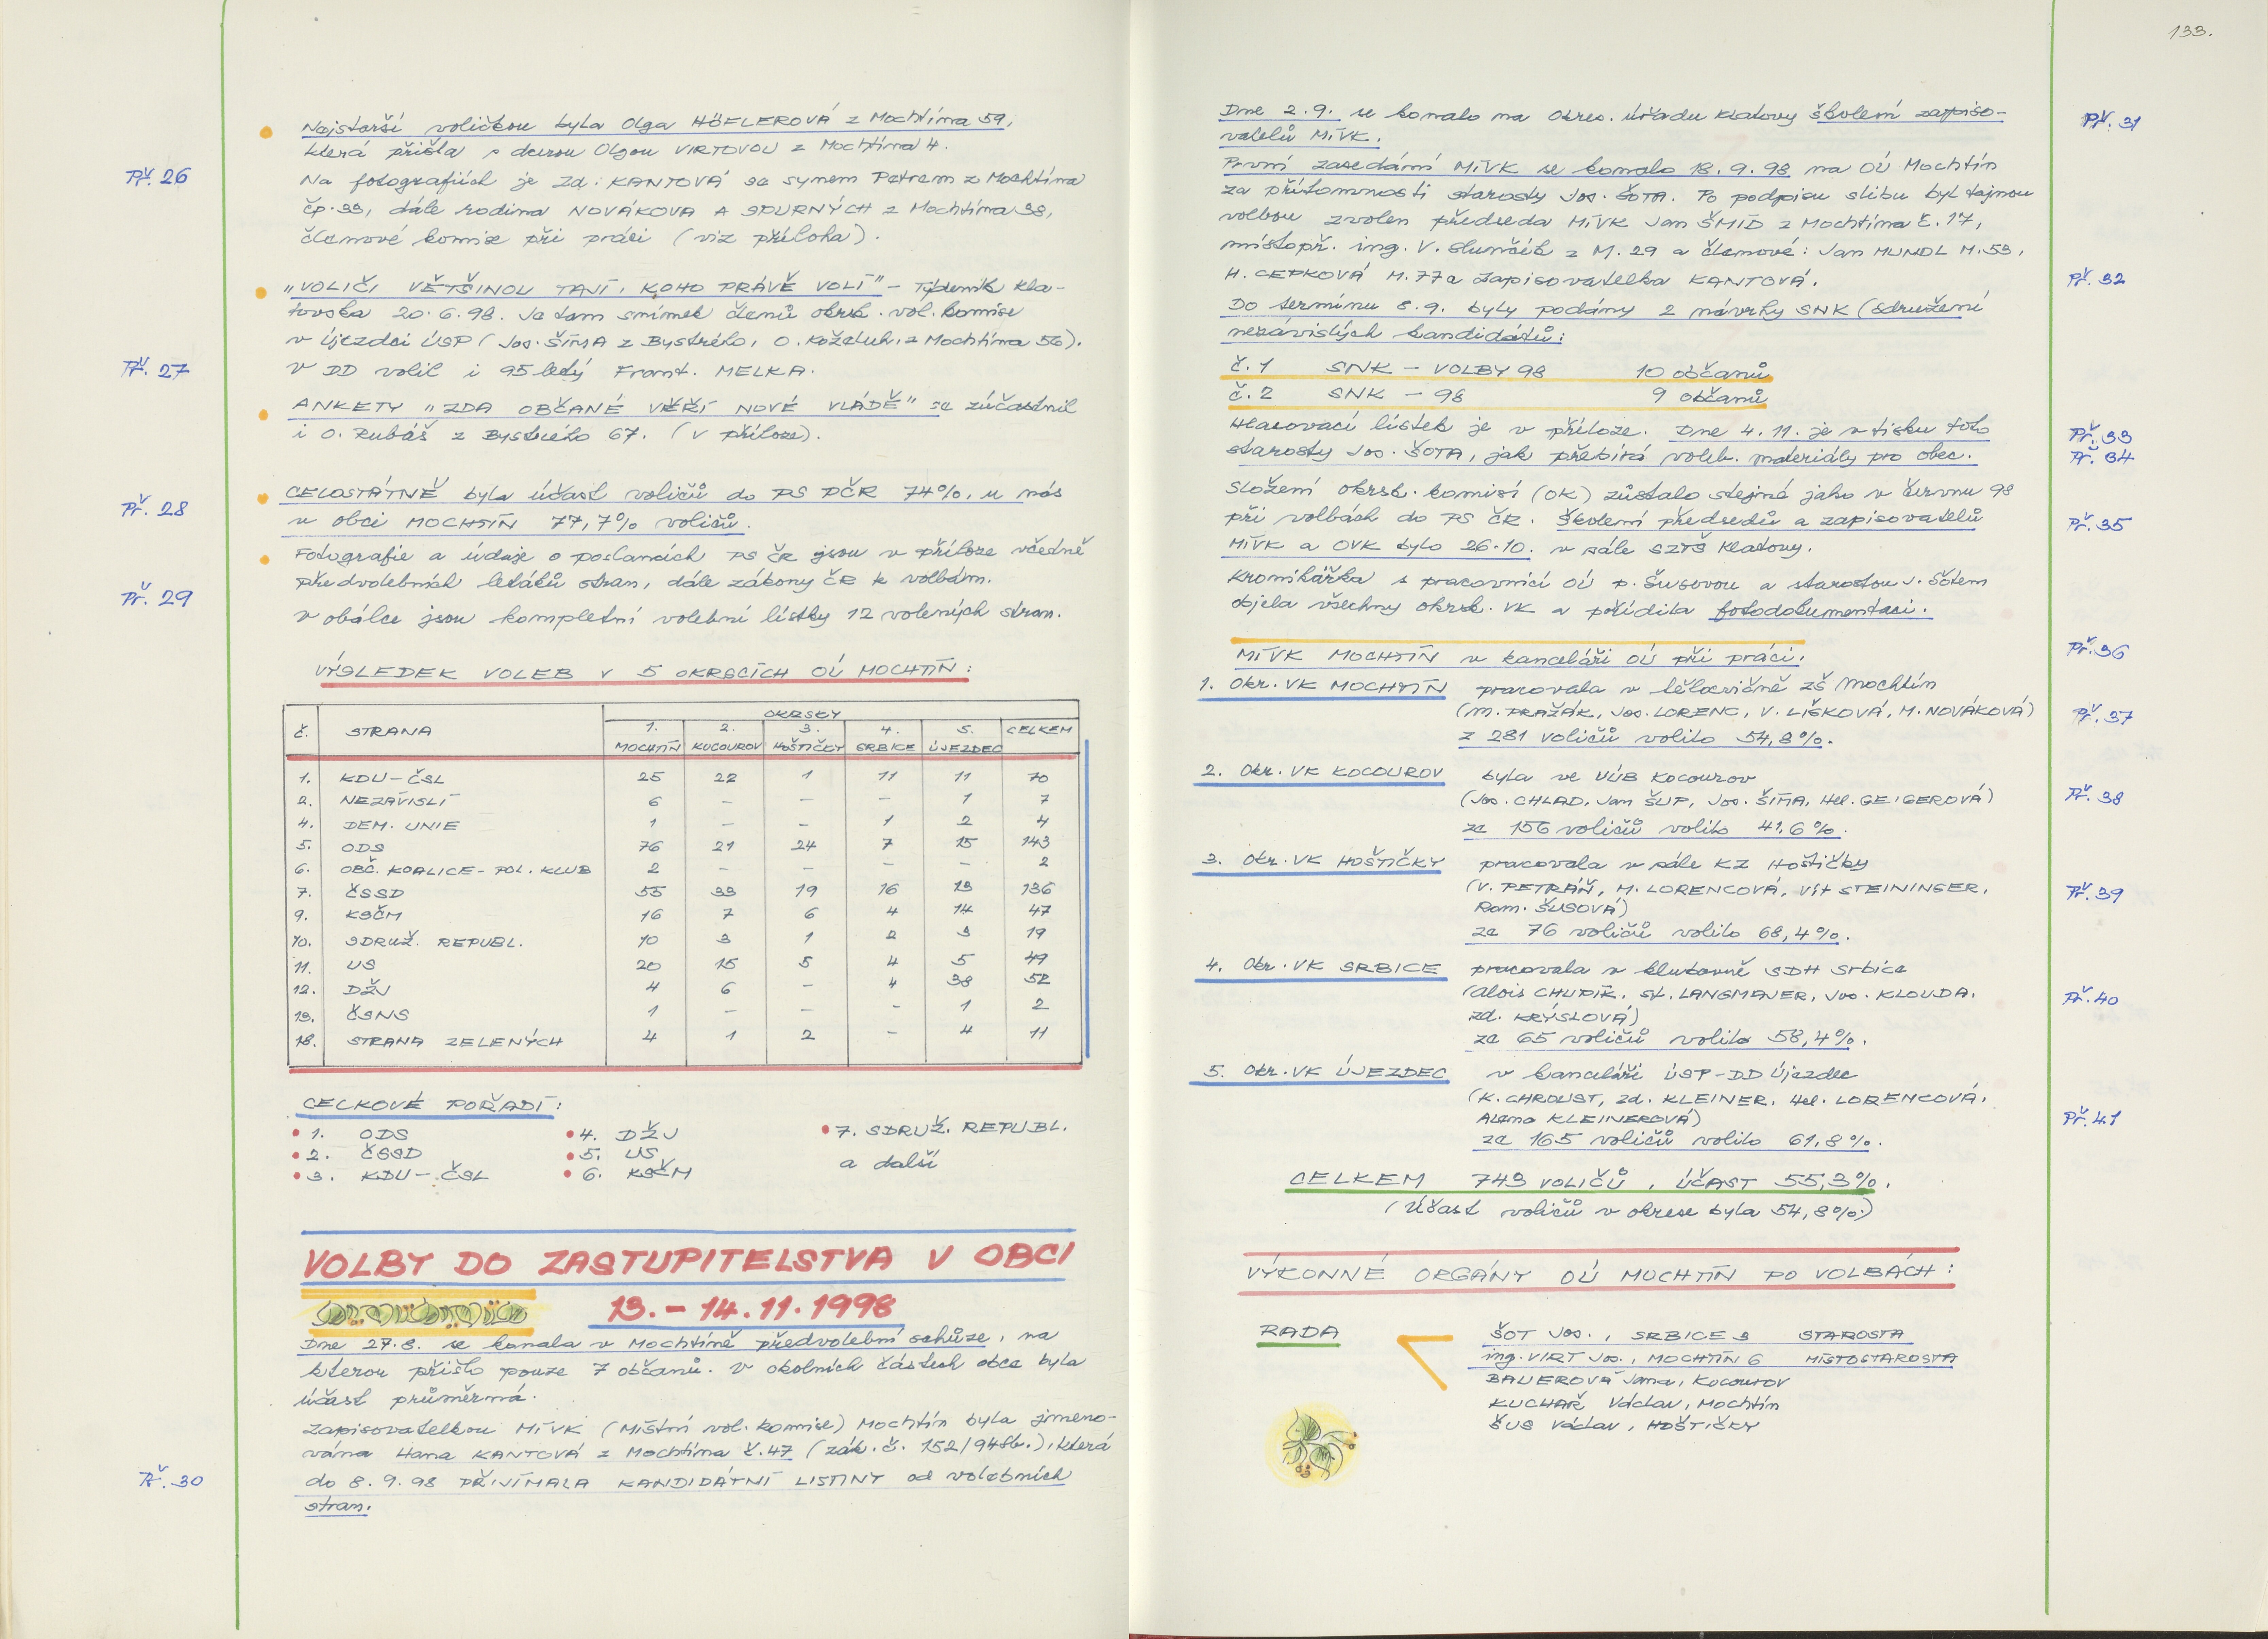 Nejstarší voličkou byla Olga HÖFLEROVÁ z Mochtína 59,
která přišla s dcerou Olgou VIRTOVOU z Mochtína 4.
Př. 26
Na fotografiích je Zd. KANTOVÁ se synem Petrem z Mochtína
čp. 33, dále rodina NOVÁKOVA A SPURNÝCH z Mochtína 38,
členové komise při práci (viz příloha).
"VOLIČI VĚTŠINOU TAJÍ, KOHO PRÁVĚ VOLÍ" – Týdeník Kla-
tovska 20.6.98. Je tam snímek členů okrsk. vol. komise
v Újezdci ÚSP (Jos. ŠÍMA z Bystrého, O. Koželuh, z Mochtína 56).
Př. 27
V DD volil i 95 letý Frant. MELKA.
ANKETY "ZDA OBČANÉ VĚŘÍ NOVÉ VLÁDĚ" se zúčastnil
i O. Rubáš z Bystrého 67. (v příloze).
CELOSTÁTNĚ byla účast voličů do PS PČR 74%, u nás
Př. 28
v obci MOCHTÍN 77,7% voličů.
Fotografie a údaje o poslancích PS ČR jsou v příloze včetně
předvolebních letáků stran, dále zákony ČR k volbám.
Př. 29
V obálce jsou kompletní volební lístky 12 volených stran.
VÝSLEDEK VOLEB V 5 OKRSCÍCH OÚ MOCHTÍN:
OKRSKY
č. STRANA 1. 2. 3. 4. 5. CELKEM
MOCHTÍN KUCOUROV HOŠTIČKY SRBICE ÚJEZDEC
1. KDU-ČSL 25 22 1 11 11 70
2. NEZÁVISLÍ 6 – – – 1 7
4. DEM. UNIE 1 – – 1 2 4
5. ODS 76 21 24 7 15 143
6. OBČ. KOALICE-POL. KLUB 2 – – – – 2
7. ČSSD 55 33 19 16 13 136
9. KSČM 16 7 6 4 14 47
10. SDRUŽ. REPUBL. 10 3 1 2 3 19
11. US 20 15 5 4 5 49
12. DŽJ 4 6 – 4 38 52
13. ČSNS 1 – – – 1 2
18. STRANA ZELENÝCH 4 1 2 – 4 11
CELKOVÉ POŘADÍ:
1. ODS 4. DŽJ 7. SDRUŽ. REPUBL.
2. ČSSD 5. US a další
3. KDU-ČSL 6. KSČM
VOLBY DO ZASTUPITELSTVA V OBCI
13. – 14.11.1998
Dne 27.8. se konala v Mochtíně předvolební schůze, na
kterou přišlo pouze 7 občanů. V okolních částech obce byla
účast průměrná.
Zapisovatelkou MíVK (Místní vol. komise) Mochtín byla jmeno-
vána Hana KANTOVÁ z Mochtína č. 47 (zák. č. 152/94Sb.), která
Př. 30
do 8.9.98 PŘIJÍMALA KANDIDÁTNÍ LISTINY od volebních
stran.
133.
Dne 2.9. se konalo na Okres. úřadu Klatovy školení zapiso-
Př. 31
vatelů MíVK.
První zasedání MíVK se konalo 18.9.98 na OÚ Mochtín
za přítomnosti starosty Jos. ŠOTA. Po podpisu slibu byl tajnou
volbou zvolen předseda MíVK Jan ŠMÍD z Mochtína č. 17,
místopř. ing. V. Slunčík z M. 29 a členové: Jan MUNDL M. 53,
H. CEPKOVÁ M. 77 a zapisovatelka KANTOVÁ.
Př. 32
Do termínu 8.9. byly podány 2 návrhy SNK (sdružení
nezávislých kandidátů:
č. 1 SNK – VOLBY 98 10 občanů
č. 2 SNK – 98 9 občanů
Hlasovací lístek je v příloze. Dne 4.11. je v tisku foto
Př. 33
starosty Jos. ŠOTA, jak přebírá voleb. materiály pro obec.
Př. 34
Složení okrsk. komisí (OK) zůstalo stejné jako v červnu 98
při volbách do PS ČR. Školení předsedů a zapisovatelů
Př. 35
MíVK a OVK bylo 26.10. v sále SZTŠ Klatovy.
Kronikářka s pracovnicí OÚ p. Šusovou a starostou J. Šotem
objela všechny okrsk. VK a pořídila fotodokumentaci.
MíVK MOCHTÍN v kanceláři OÚ při práci.
Př. 36
1. Okr. VK MOCHTÍN pracovala v tělocvičně ZŠ Mochtín
(M. PRAŽÁK, Jos. LORENC, V. LIŠKOVÁ, M. NOVÁKOVÁ)
Př. 37
z 281 voličů volilo 54,8%.
2. Okr. VK KOCOUROV byla ve VÚB Kocourov
(Jos. CHLAD, Jan ŠUP, Jos. ŠÍMA, Hel. GEIGEROVÁ)
Př. 38
ze 156 voličů volilo 41,6%.
3. Okr. VK HOŠTIČKY pracovala v sále KZ Hoštičky
(V. PETRÁŇ, M. LORENCOVÁ, Vít STEININGER,
Př. 39
Rom. ŠUSOVÁ)
ze 76 voličů volilo 68,4%.
4. Okr. VK SRBICE pracovala v klubovně SDH Srbice
(Alois CHUPÍK, St. LANGMAJER, Jos. KLOUDA,
Př. 40
Zd. KRÝSLOVÁ)
ze 65 voličů volilo 58,4%.
5. Okr. VK ÚJEZDEC v kanceláři ÚSP-DD Újezdec
(K. CHROUST, Zd. KLEINER, Hel. LORENCOVÁ,
Alena KLEINEROVÁ)
Př. 41
ze 165 voličů volilo 61,8%.
CELKEM 743 VOLIČŮ, ÚČAST 55,3%.
(Účast voličů v okrese byla 54,8%)
VÝKONNÉ ORGÁNY OÚ MOCHTÍN PO VOLBÁCH:
RADA ŠOT Jos., SRBICE 3 STAROSTA
ing. VIRT Jos., MOCHTÍN 6 MÍSTOSTAROSTA
BAUEROVÁ Jana, Kocourov
KUCHAŘ Václav, Mochtín
ŠUS Václav, HOŠTIČKY